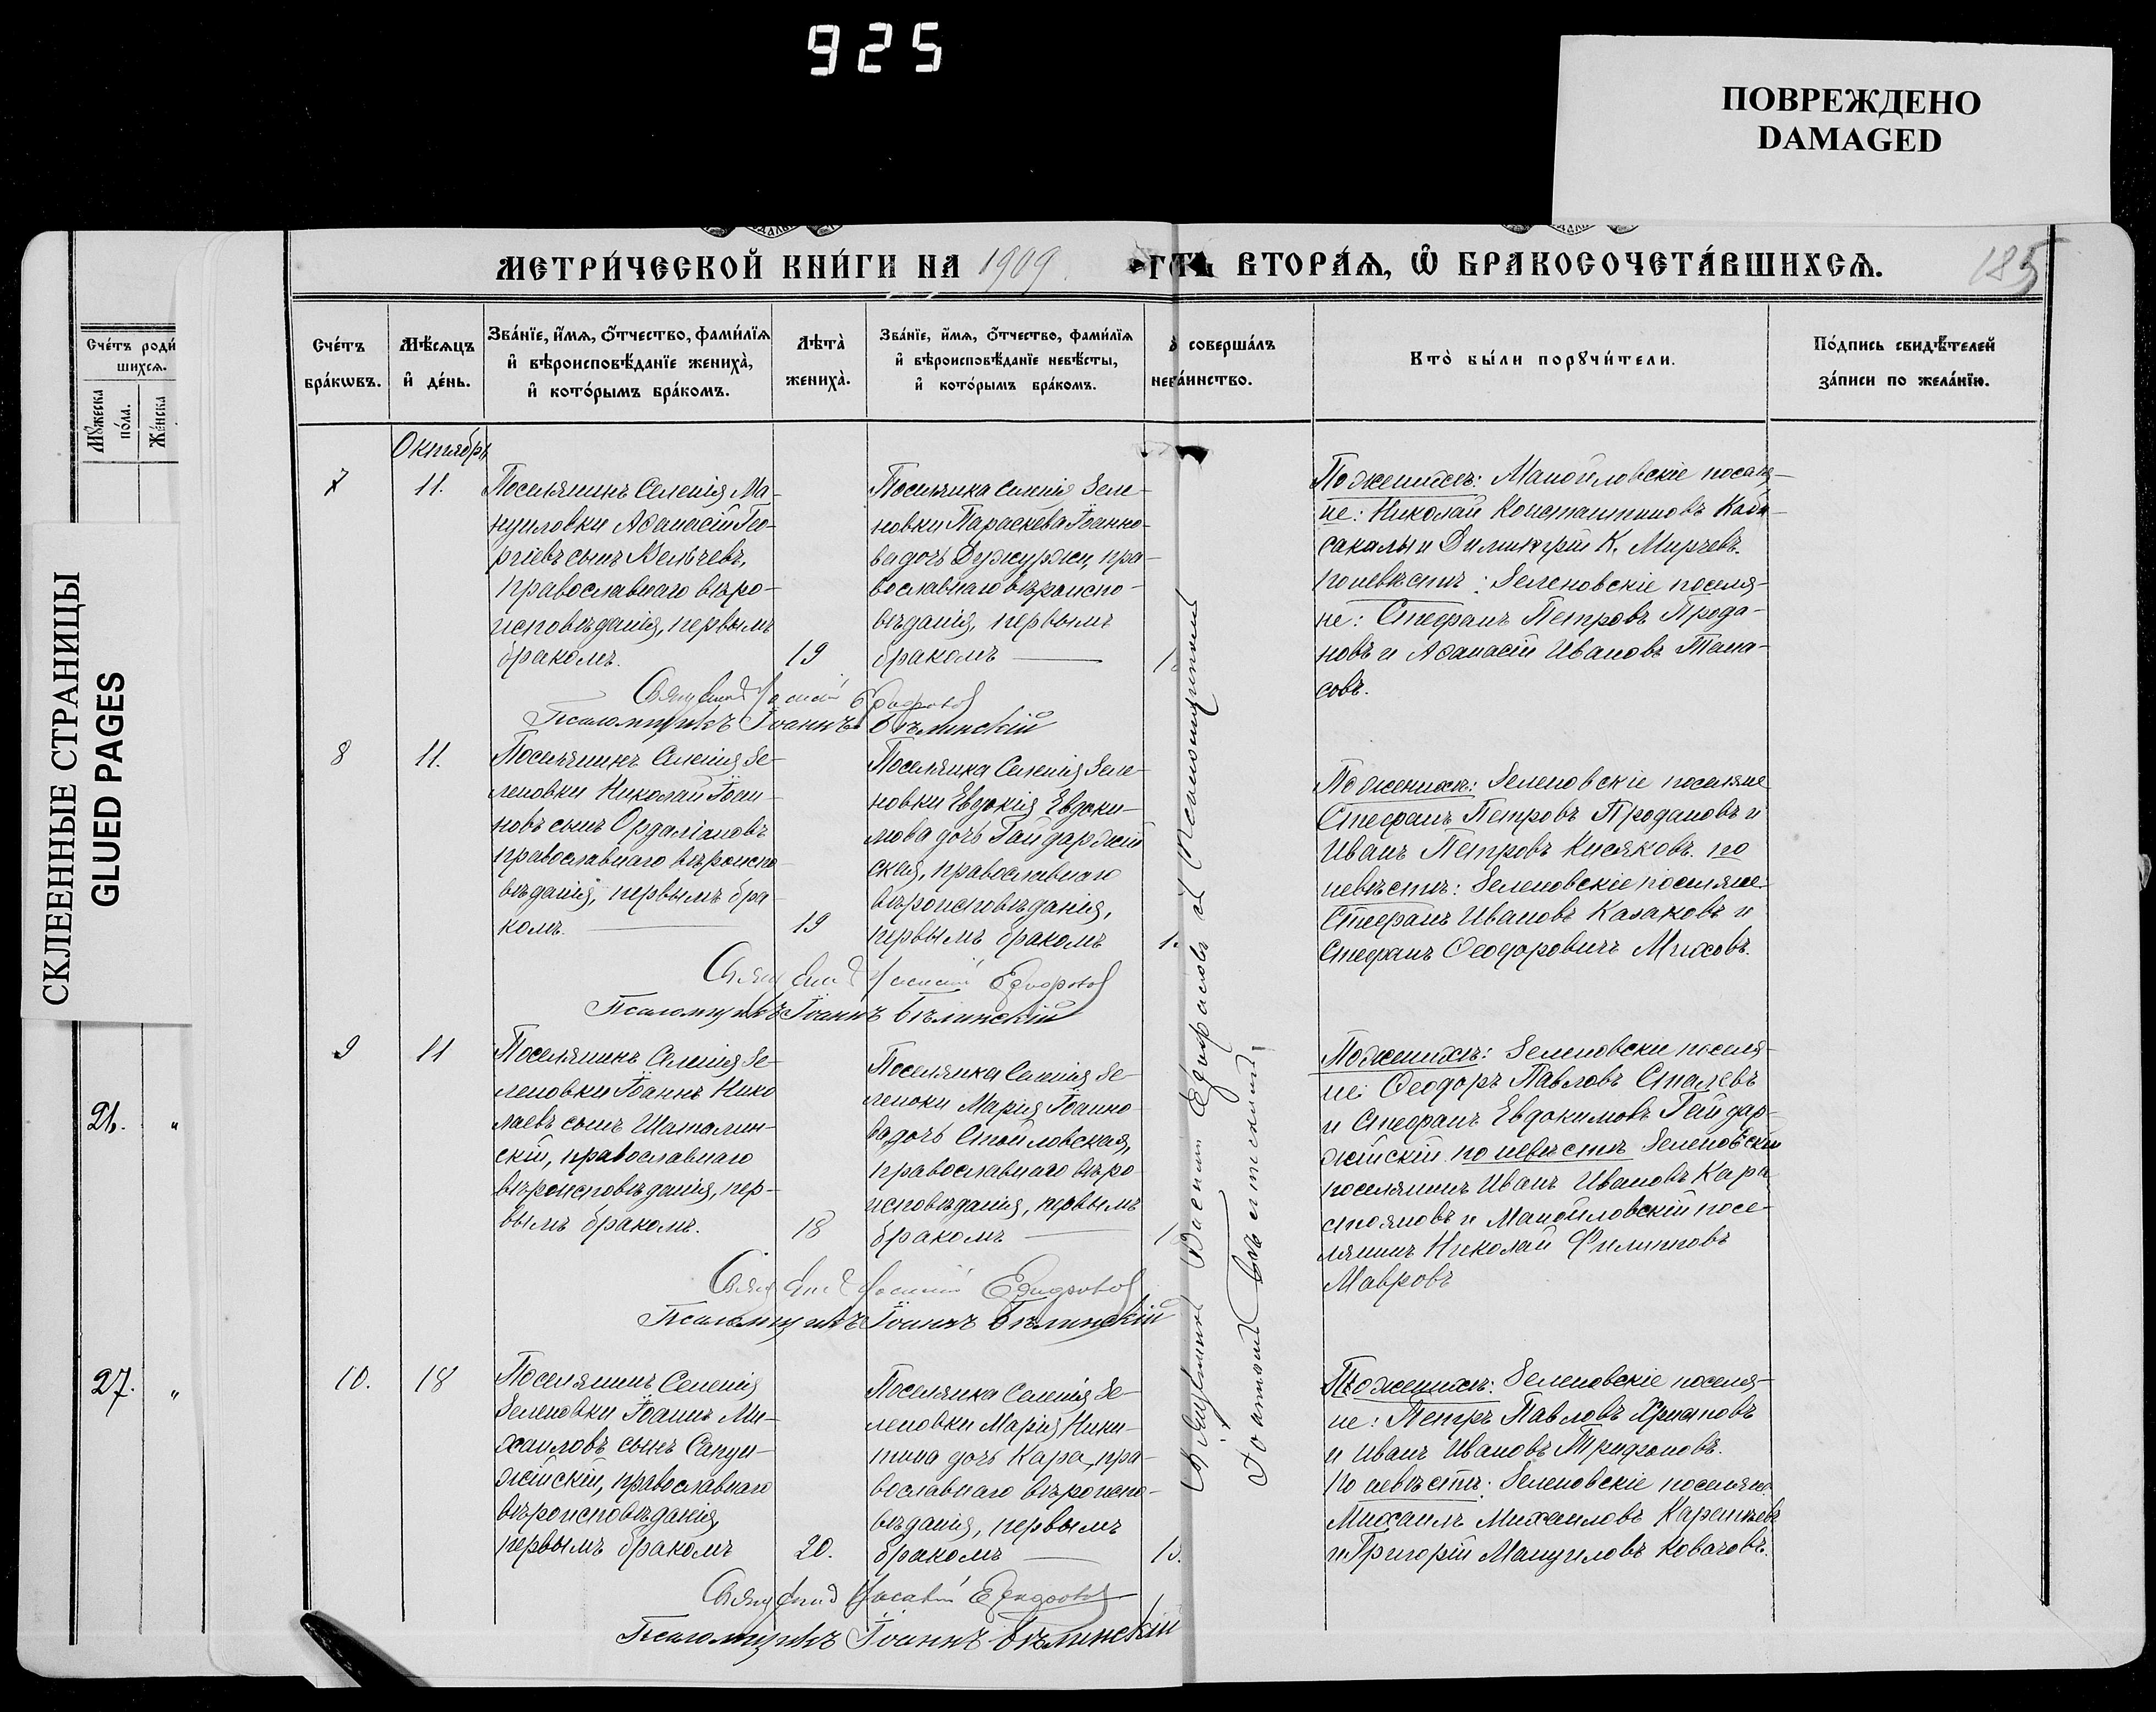 925
ПОВРЕЖДЕНО
DAMAGED
СКЛЕЕННЫЕ СТРАНИЦЫ
GLUED PAGES
Сче́тъ роди́
шихсѧ.
Мꙋ́жеска
по́ла.
Же́нска
26.
"
27.
"
МЕТРИ́ЧЕСКОЙ КНИ́ГИ НА 1909
ВТОРА́Ѧ, Ѽ БРАКОСОЧЕТА́ВШИХСѦ.
185
Сче́тъ
бра́кѡвъ.
Мѣ́сѧцъ
и҆ де́нь.
Зва́нїе, и҆́мѧ, ѻ҆́тчество, фами́лїѧ
и҆ вѣроисповѣ́данїе жениха̀,
и҆ кото́рымъ бра́комъ.
Лѣта̀
жениха̀.
Зва́нїе, и҆́мѧ, ѻ҆́тчество, фами́лїѧ
и҆ вѣроисповѣ́данїе невѣ́сты,
и҆ кото́рымъ бра́комъ.
соверша́лъ
та́инство.
Кто̀ бы́ли порꙋчи́тели.
По́дпись свидѣ́телей
за́писи по жела́нїю.
Октябрь
7
11.
Поселянинъ Селенія Ма-
нуиловки Аѳанасій Гео-
ргіевъ сынъ Вельчевъ,
православнаго вѣро-
исповѣданія, первымъ
бракомъ.
19
Поселянка селенія Зеле-
новки Параскева Іоанно-
ва дочь Дужуржи, пра-
вославнаго вѣроиспо-
вѣданія, первымъ
бракомъ
По женихѣ: Манойловскіе поселя-
не: Николай Константиновъ Каба-
сакалы и Димитрій К. Мирчевъ.
по невѣстѣ: Зеленовскіе поселя-
не: Стефанъ Петровъ Прода-
новъ и Аѳанасій Ивановъ Тана-
совъ.
Псаломщикъ Іоаннъ Бѣлинскій
8
11.
Поселянинъ Селенія Зе-
леновки Николай Іоан-
новъ сынъ Ордаліоновъ
православнаго вѣроиспо-
вѣданія, первымъ бра-
комъ.
19
Поселянка Селенія Зеле-
новки Евдокія Евдоки-
мова дочь Гайдаржій
ская, православнаго
вѣроисповѣданія,
первымъ бракомъ
По женихѣ: Зеленовскіе поселяне
Стефанъ Петровъ Продановъ и
Иванъ Петровъ Кисяковъ. по
невѣстѣ: Зеленовскіе поселяне:
Стефанъ Ивановъ Казаковъ и
Стефанъ Ѳеодоровичъ Миховъ.
Псаломщикъ Іоаннъ Бѣлинскій
9
11
Поселянинъ Селенія Зе-
леновки Іоаннъ Нико
лаевъ сынъ Шаталин-
скій, православнаго
вѣроисповѣданія, пер-
вымъ бракомъ.
18
Поселянка Селенія Зе-
леноки Марія Іоанно-
ва дочь Стойловская,
православнаго вѣро
исповѣданія, первымъ
бракомъ
По женихѣ: Зеленовскіе поселя-
не: Ѳеодоръ Павловъ Сталевъ
и Стефанъ Евдокимовъ Гайдар-
жійскій по невѣстѣ Зеленовскій
поселянинъ Иванъ Ивановъ Кара
стояновъ и Манойловскій посе-
лянинъ Николай Филиповъ
Мавровъ
Псаломщикъ Іоаннъ Бѣлинскій
10.
18
Поселянинъ Селенія
Зеленовки Іоаннъ Ми-
хаиловъ сынъ Сапун-
жійскій, православнаго
вѣроисповѣданія,
первымъ бракомъ
20.
Поселянка Селенія Зе-
леновки Марія Ники-
тина дочь Кара, пра-
вославнаго вѣроиспо-
вѣданія, первымъ
бракомъ
По женихѣ: Зеленовскіе поселя-
не: Петръ Павловъ Христовъ
и Иванъ Ивановъ Трифоновъ.
По невѣстѣ: Зеленовскіе поселяне:
Михаилъ Михаиловъ
и Григорій Мануиловъ Ковачовъ.
Псаломщикъ Іоаннъ Бѣлинскій